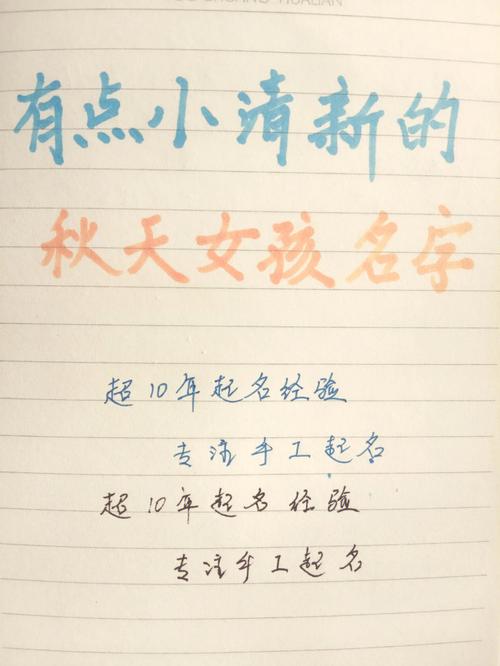 有点小清新的
秋天女孩名字
超10年起名经验
专注手工起名
超10年起名经验
专注手工起名